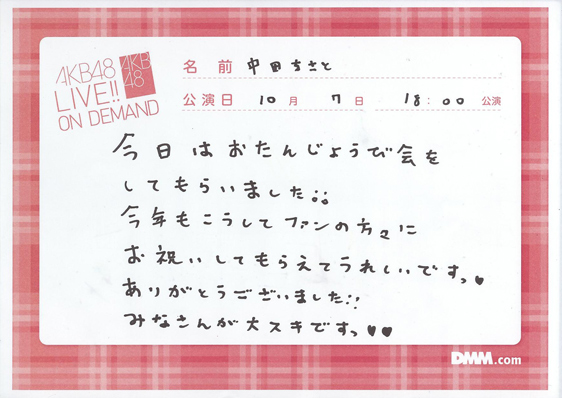 AKB48
LIVE!!
ON DEMAND
AKB
48
名前 中田ちさと
公演日 10月 7日 18:00 公演
今日はおたんじょうび会を
してもらいました!!
今年もこうしてファンの方々に
お祝いしてもらえてうれしいですっ♥
ありがとうございました!!
みなさんが大スキですっ♥♥
DMM.com